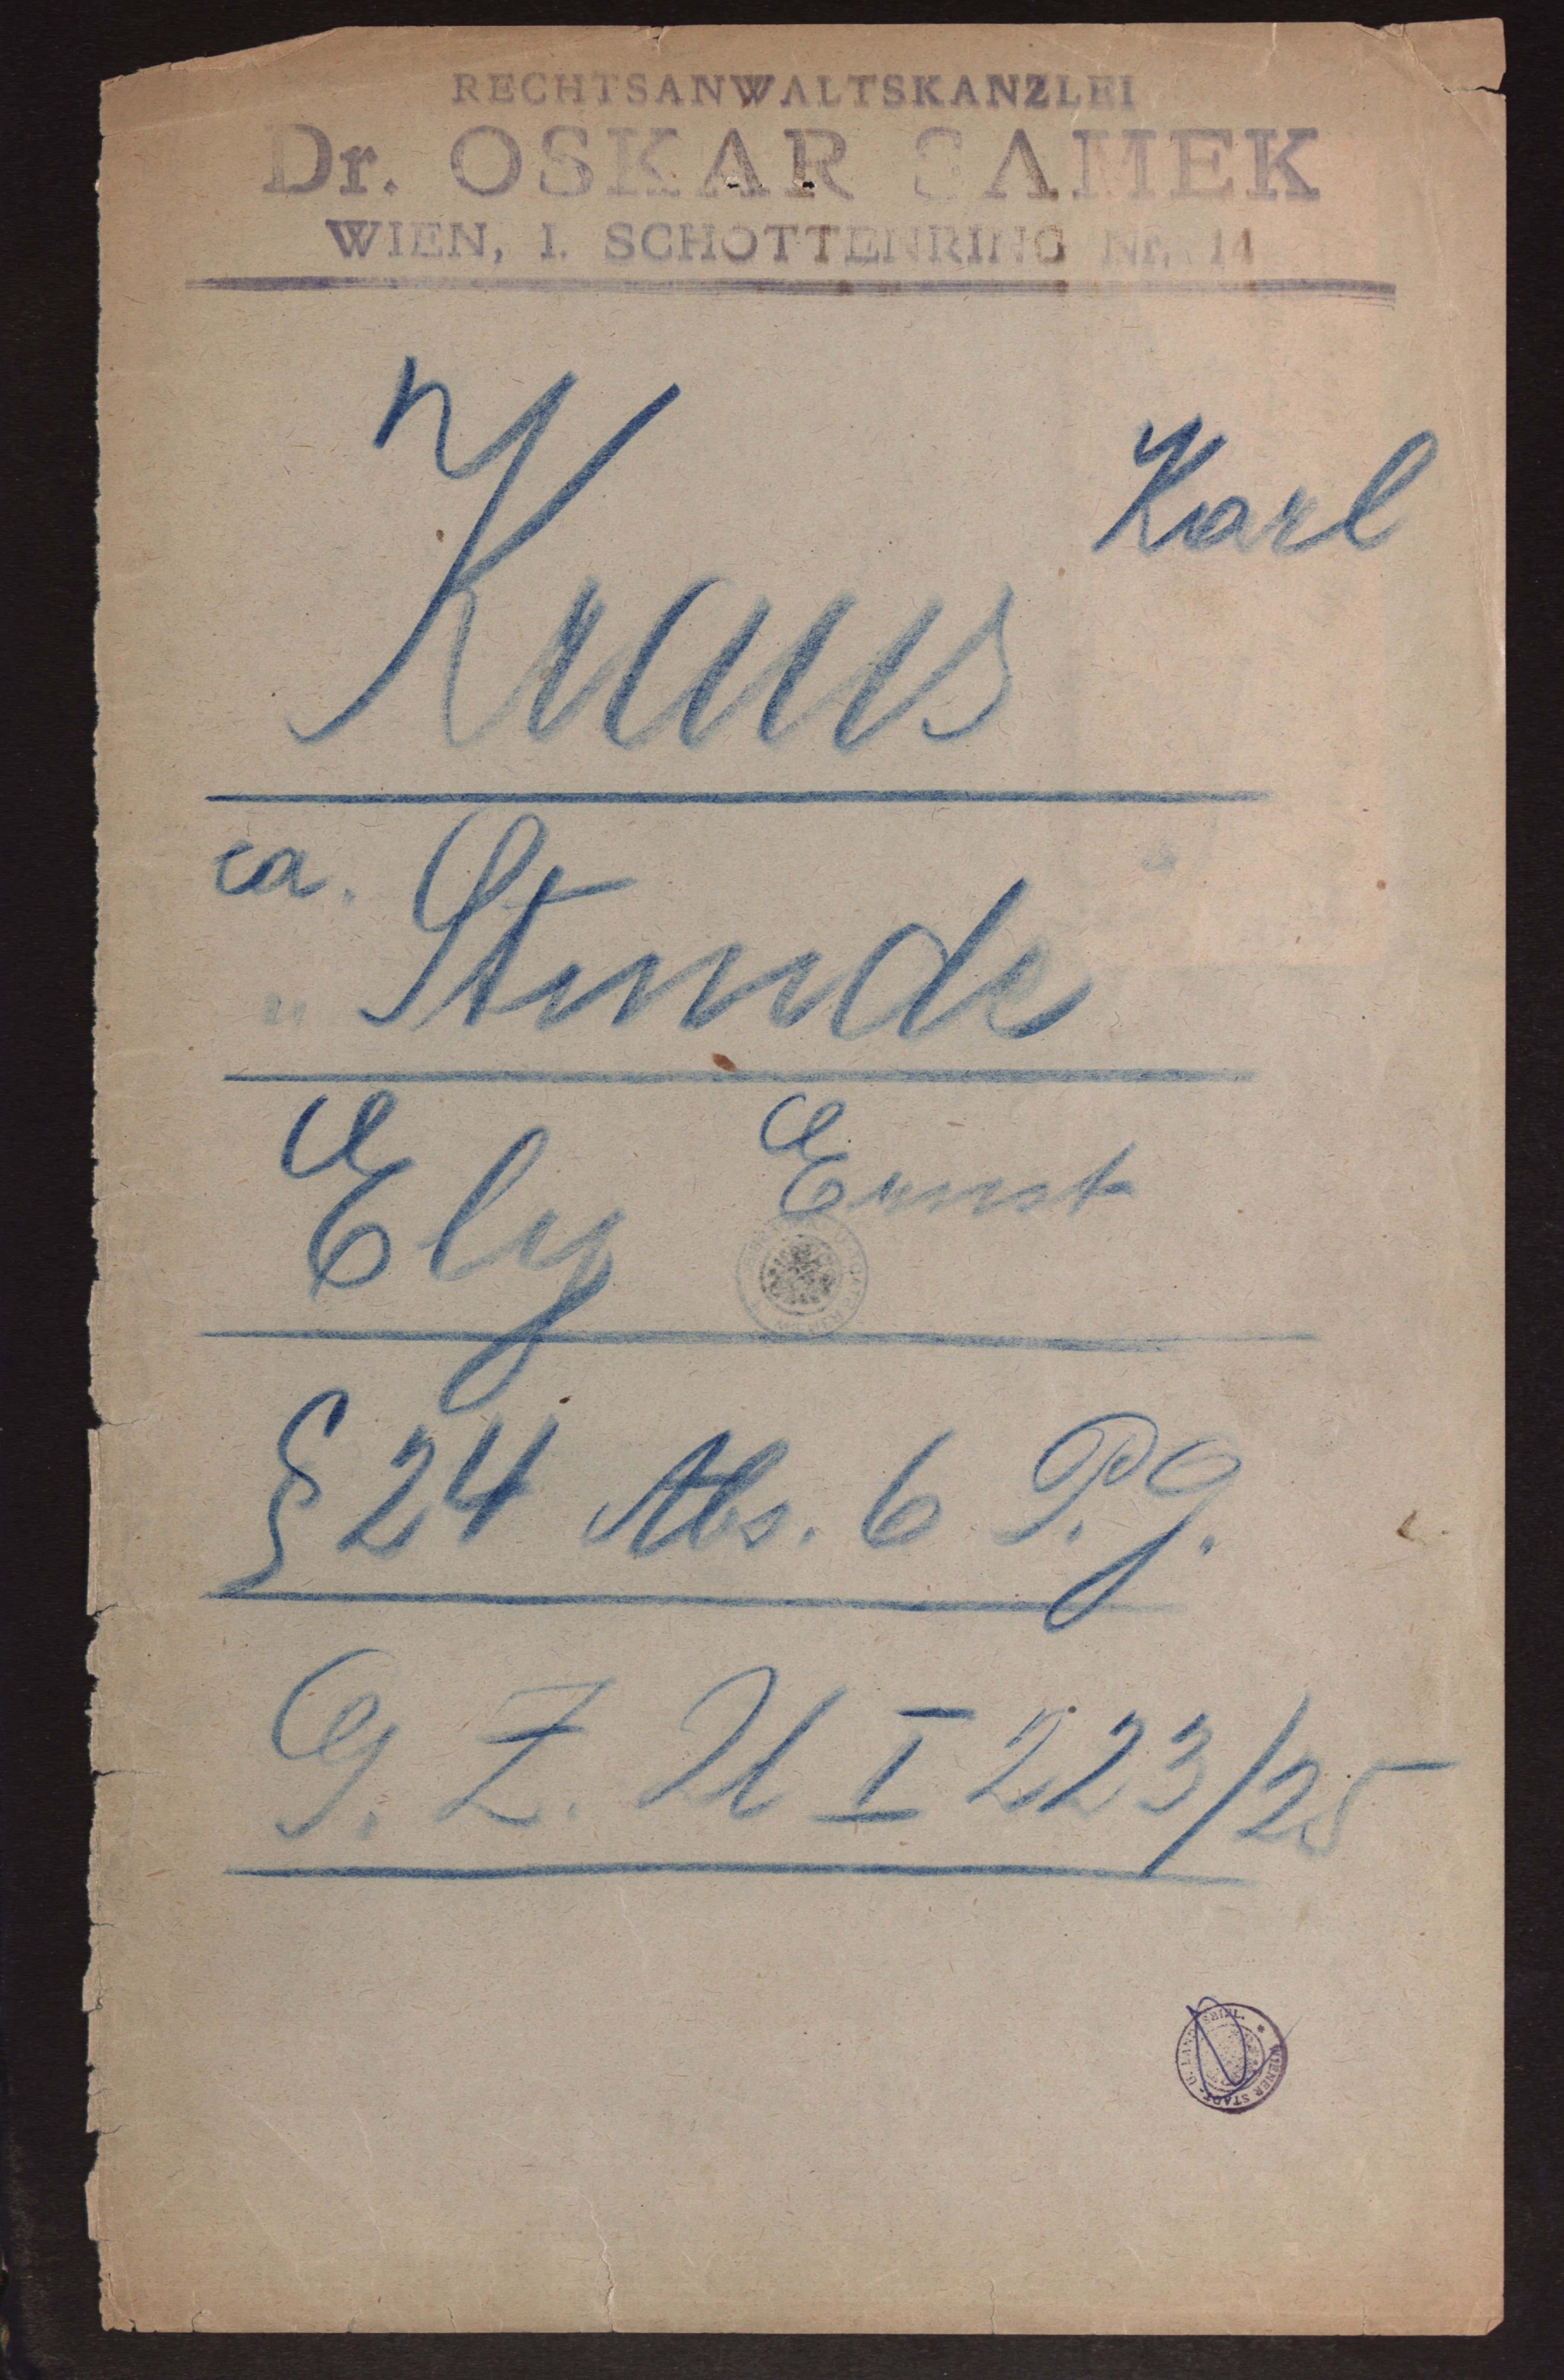 RECHTSANWALTSKANZLEI
Dr. OSKAR SAMEK
WIEN, I. SCHOTTENRING Nr. 14
Kraus Karl
ca.
„Stunde“
Ely Ernst
§ 24 Abs. 6 P.G.
G. Z. U I 223/25
WIENER STADT- U. LANDESBIBL.